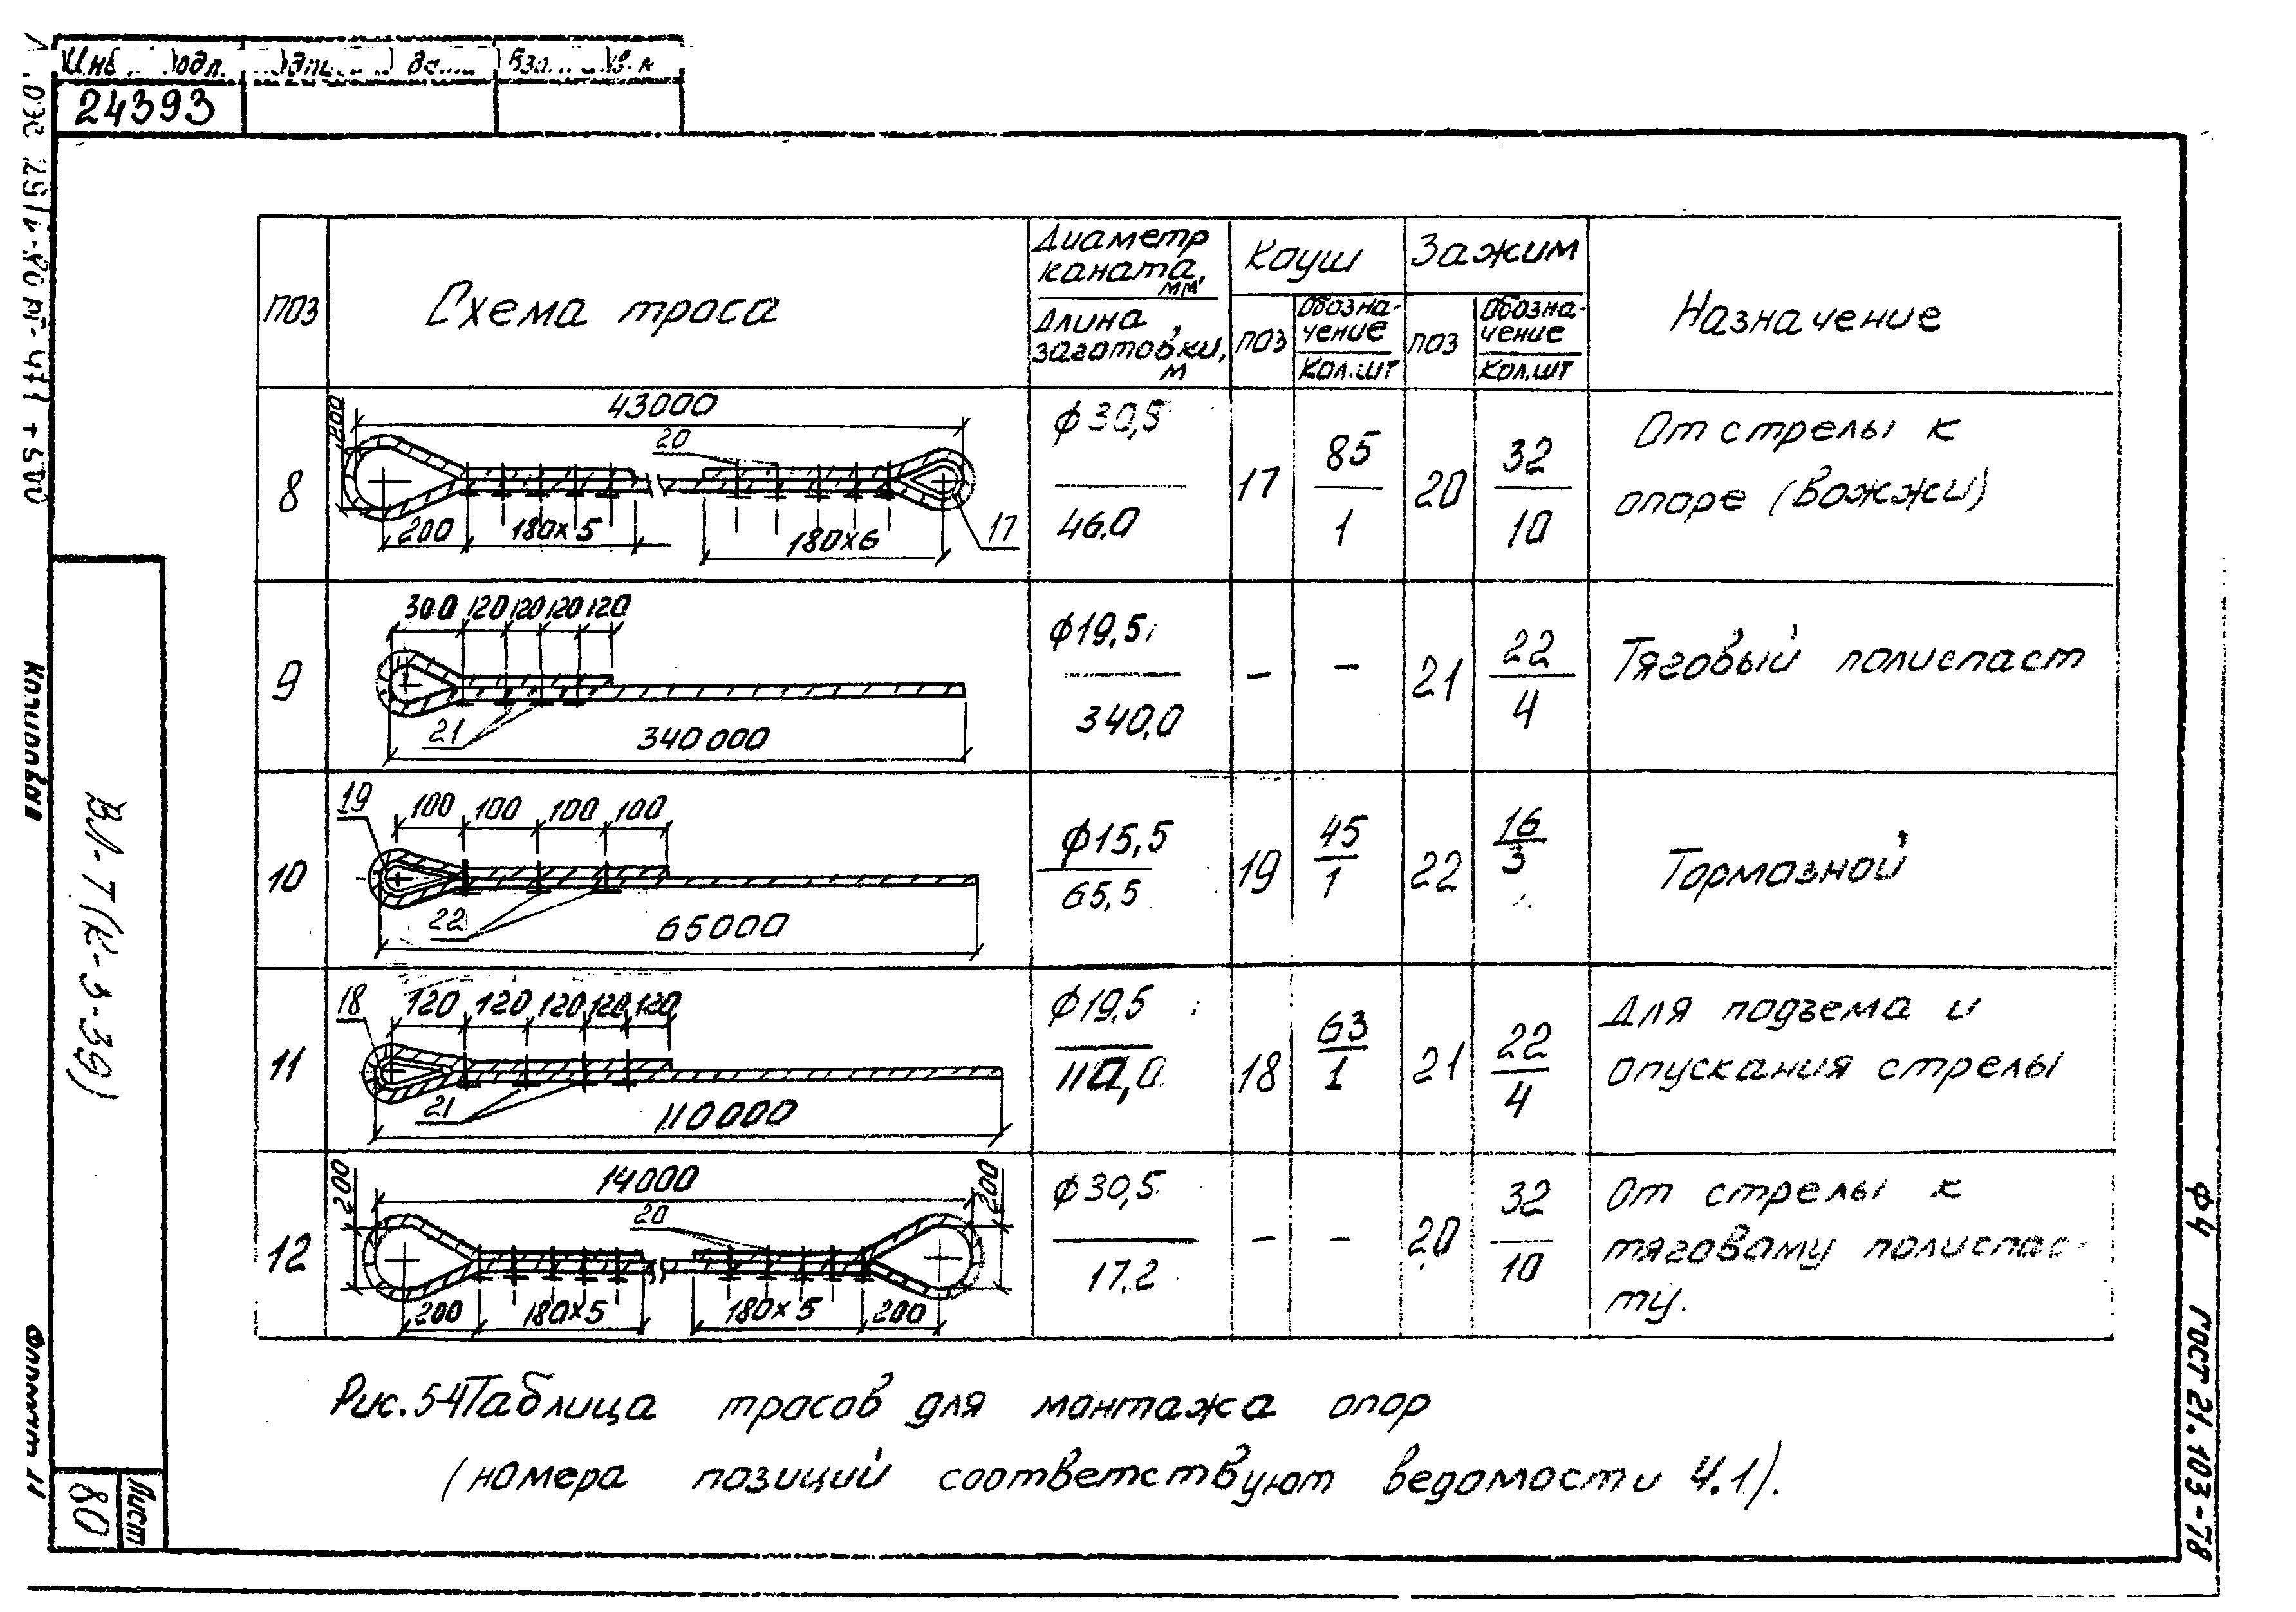 24393
поз
Схема троса
Диаметр
каната,
мм
Длина
заготовки,
м
Коуш
поз
Обозна-
чение
Кол.шт
Зажим
поз
Обозна-
чение
Кол.шт
Назначение
8
43000
200
20
200
180х5
180х6
17
ф30,5
46.0
17
85
1
20
32
10
От стрелы к
опоре (вожжи)
9
300 120 120 120 120
21
340 000
ф19,5
340,0
-
-
21
22
4
Тяговый полиспаст
10
19
100 100 100 100
22
65000
ф15,5
65,5
19
45
1
22
16
3
Тормозной
11
18
120 120 120 120 120
21
110000
ф19,5
110,0
18
63
1
21
22
4
Для подъема и
опускания стрелы
12
14000
200
200
20
200
180х5
180х5
200
ф30,5
17.2
-
-
20
32
10
От стрелы к
тяговому полиспас-
ту.
Рис. 5-4 Таблица тросов для монтажа опор
(номера позиций соответствуют ведомости 4.1).
Копировал
ВЛ-Т(К-3-39)
Лист
80
Ф4 ГОСТ 21.103-78